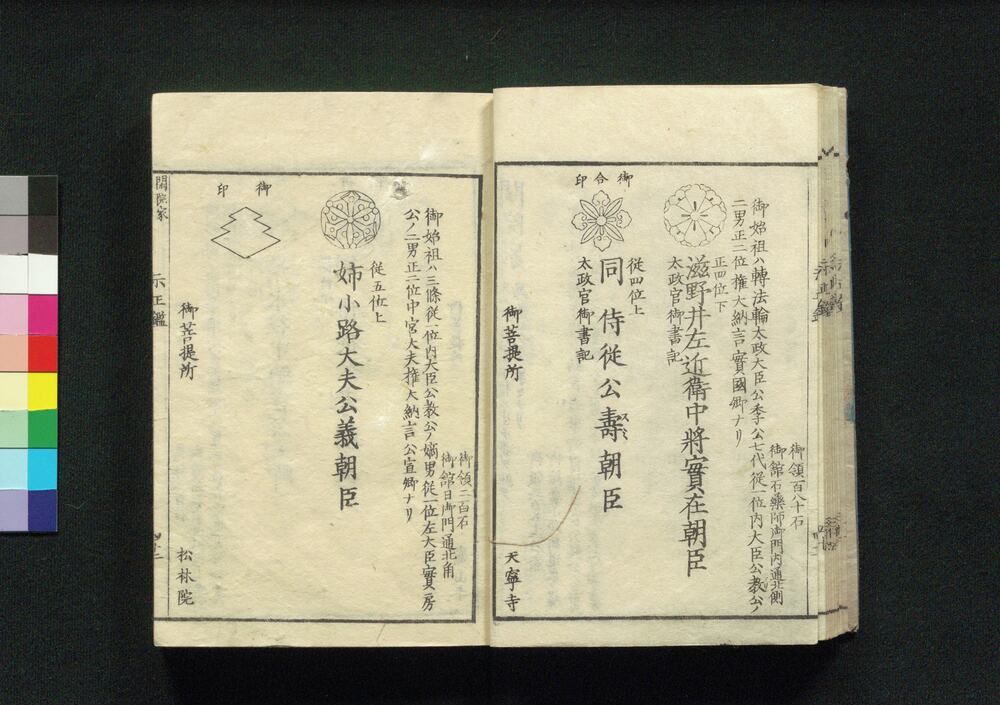 御領百八十石
御館石藥師御門内通北側
御始祖ハ轉法輪太政大臣公季公七代從一位内大臣公教公ノ
二男正二位權大納言實國卿ナリ
正四位下
滋野井左近衛中將實在朝臣
太政官御書記
御合印
從四位上
同侍從公壽朝臣
太政官御書記
御菩提所
天寧寺
御領二百石
御館日御門通北角
御始祖ハ三條從一位内大臣公教公ノ嫡男從一位左大臣實房
公ノ二男正二位中宮大夫權大納言公宣卿ナリ
從五位上
姉小路大夫公義朝臣
御印
御菩提所
松林院
閑院家
示正鑑
四十二